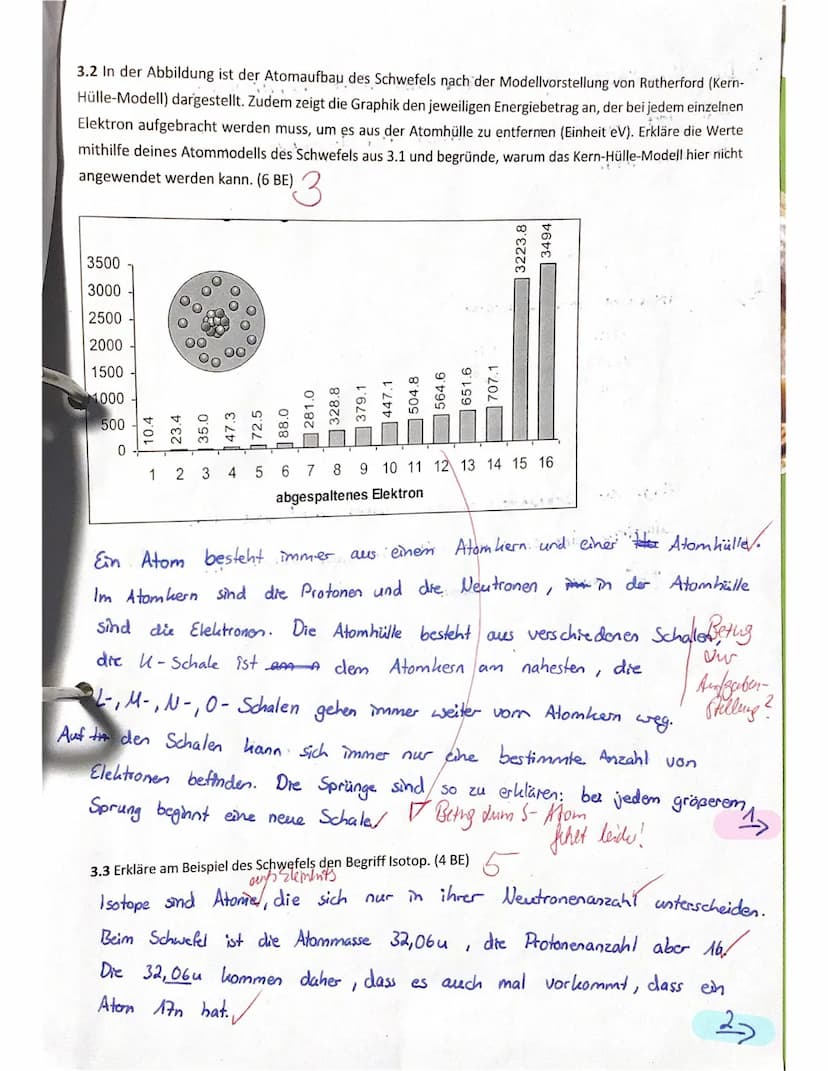 3.2 In der Abbildung ist der Atomaufbau des Schwefels nach der Modellvorstellung von Rutherford (Kern-
Hülle-Modell) dargestellt. Zudem zeigt die Graphik den jeweiligen Energiebetrag an, der bei jedem einzelnen
Elektron aufgebracht werden muss, um es aus der Atomhülle zu entfernen (Einheit eV). Erkläre die Werte
mithilfe deines Atommodells des Schwefels aus 3.1 und begründe, warum das Kern-Hülle-Modell hier nicht
angewendet werden kann. (6 BE) 3
3500
3000
2500
2000
1500
1000
500
0
10.4 23.4 35.0 47.3 72.5 88.0 281.0 328.8 379.1 447.1 504.8 564.6 651.6 707.1 3223.8 3494
1 2 3 4 5 6 7 8 9 10 11 12 13 14 15 16
abgespaltenes Elektron
Ein Atom besteht immer aus einem Atomkern und einer Atomhülle.
Im Atomkern sind die Protonen und die Neutronen, in der Atomhülle
sind die Elektronen. Die Atomhülle besteht aus verschiedenen Schalen,
die K-Schale ist dem Atomkern am nahesten, die
L-, M-, N-, O- Schalen gehen immer weiter vom Atomkern weg.
Bezug
zur
Aufgaben-
stellung?
Auf den Schalen kann sich immer nur eine bestimmte Anzahl von
Elektronen befinden. Die Sprünge sind so zu erklären: bei jedem größerem
Sprung beginnt eine neue Schale
Bezug zum S-Atom
fehlt leider!
1
3.3 Erkläre am Beispiel des Schwefels den Begriff Isotop. (4 BE) 5
Isotope sind Atome, die sich nur in ihrer Neutronenanzahl unterscheiden.
Beim Schwefel ist die Atommasse 32,06u, die Protonenanzahl aber 16.
Die 32,06u kommen daher, dass es auch mal vorkommt, dass ein
Atom 17n hat.
2